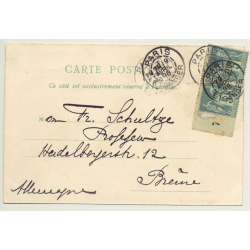 CARTE POSTALE
Ce côté est exclusivement réservé à l'adresse
PARIS
PARIS
Fr. Schultze
Professeur
Heidelbergerstr. 12
Brême
Allemagne